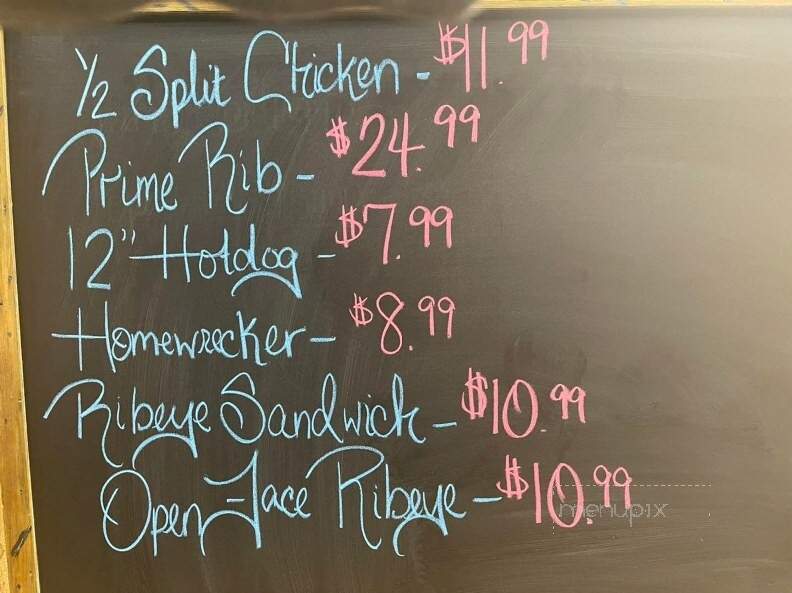 1/2 Split Chicken - $11.99
Prime Rib - $24.99
12" Hotdog - $7.99
Homewrecker - $8.99
Ribeye Sandwich - $10.99
Open Face Ribeye - $10.99
menupix